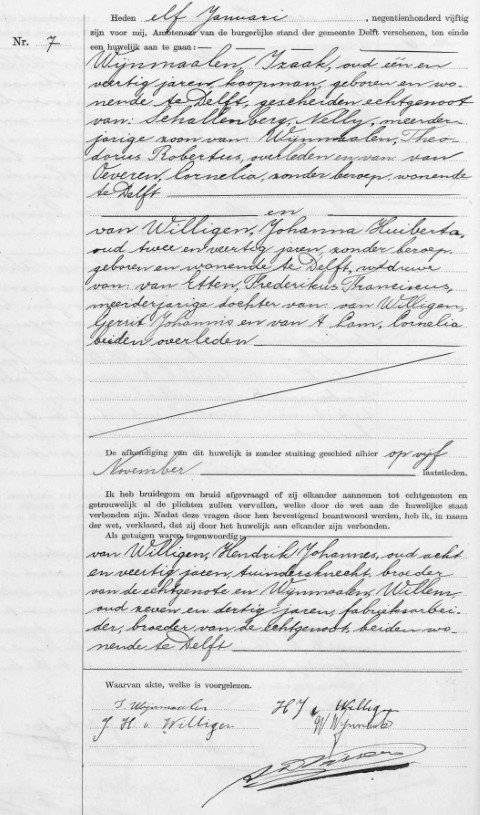 Heden elf Januari, negentienhonderd vijftig
Nr. 7
zijn voor mij, Ambtenaar van de burgerlijke stand der gemeente Delft verschenen, ten einde
een huwelijk aan te gaan:
Wijnmaalen, Izaak, oud één en
veertig jaren, koopman, geboren en wo-
nende te Delft, gescheiden echtgenoot
van: Schallenberg, Nelly, meerder-
jarige zoon van: Wijnmaalen, Theo-
dorus Robertus, overleden en van: van
Oeveren, Cornelia, zonder beroep, wonende
te Delft
en
van Willigen, Johanna Huiberta,
oud twee en veertig jaren, zonder beroep,
geboren en wonende te Delft, weduwe
van: van Etten, Frederikus Franciscus,
meerderjarige dochter van: van Willigen,
Gerrit Johannis en van 't Lam, Cornelia
beiden overleden
De afkondiging van dit huwelijk is zonder stuiting geschied alhier op vijf
November laatstleden.
Ik heb bruidegom en bruid afgevraagd of zij elkander aannemen tot echtgenoten en
getrouwelijk al de plichten zullen vervullen, welke door de wet aan de huwelijke staat
verbonden zijn. Nadat deze vragen door hen bevestigend beantwoord werden, heb ik, in naam
der wet, verklaard, dat zij door het huwelijk aan elkander zijn verbonden.
Als getuigen waren tegenwoordig:
van Willigen, Hendrik Johannes, oud acht
en veertig jaren, tuindersknecht, broeder
van de echtgenote en Wijnmaalen, Willem,
oud zeven en dertig jaren, fabrieksarbei-
der, broeder van de echtgenoot, beiden wo-
nende te Delft
Waarvan akte, welke is voorgelezen.
I. Wijnmaalen H J v Willigen
J. H. v. Willigen W Wijnmaalen